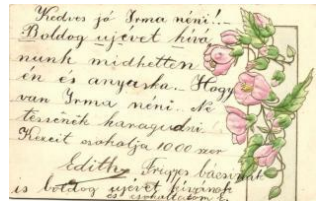 Kedves jó Irma néni!
Boldog ujévet kívá
nunk midketten
én és anyuska. Hogy
van Irma néni. Ne
tessenék haragudni.
Kezeit csokolja 1000 szer
Edith. Frigyes bácsinak
is boldog ujévet kivánok
és csokoltatom